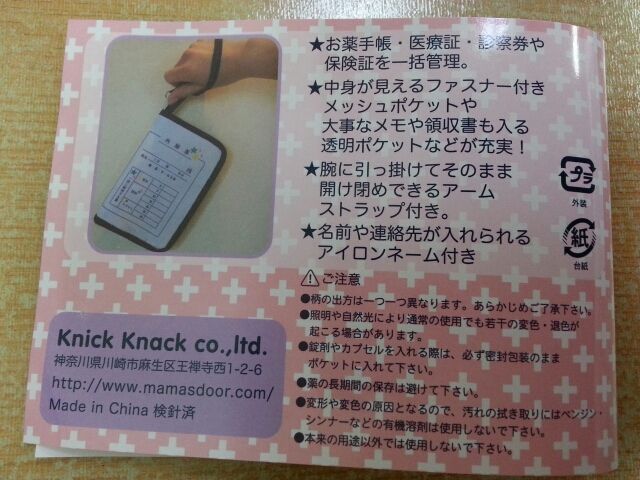 ★お薬手帳・医療証・診察券や
保険証を一括管理。
★中身が見えるファスナー付き
メッシュポケットや
大事なメモや領収書も入る
透明ポケットなどが充実！
★腕に引っ掛けてそのまま
開け閉めできるアーム
ストラップ付き。
★名前や連絡先が入れられる
アイロンネーム付き
プラ
外装
紙
台紙
ご注意
●柄の出方は一つ一つ異なります。あらかじめご了承下さい。
●照明や自然光により通常の使用でも若干の変色・退色が
起こる場合があります。
●錠剤やカプセルを入れる際は、必ず密封包装のまま
ポケットに入れて下さい。
●薬の長期間の保存は避けて下さい。
●変形や変色の原因となるので、汚れの拭き取りにはベンジン・
シンナーなどの有機溶剤は使用しないで下さい。
●本来の用途以外では使用しないで下さい。
Knick Knack co.,ltd.
神奈川県川崎市麻生区王禅寺西1-2-6
http://www.mamasdoor.com/
Made in China 検針済